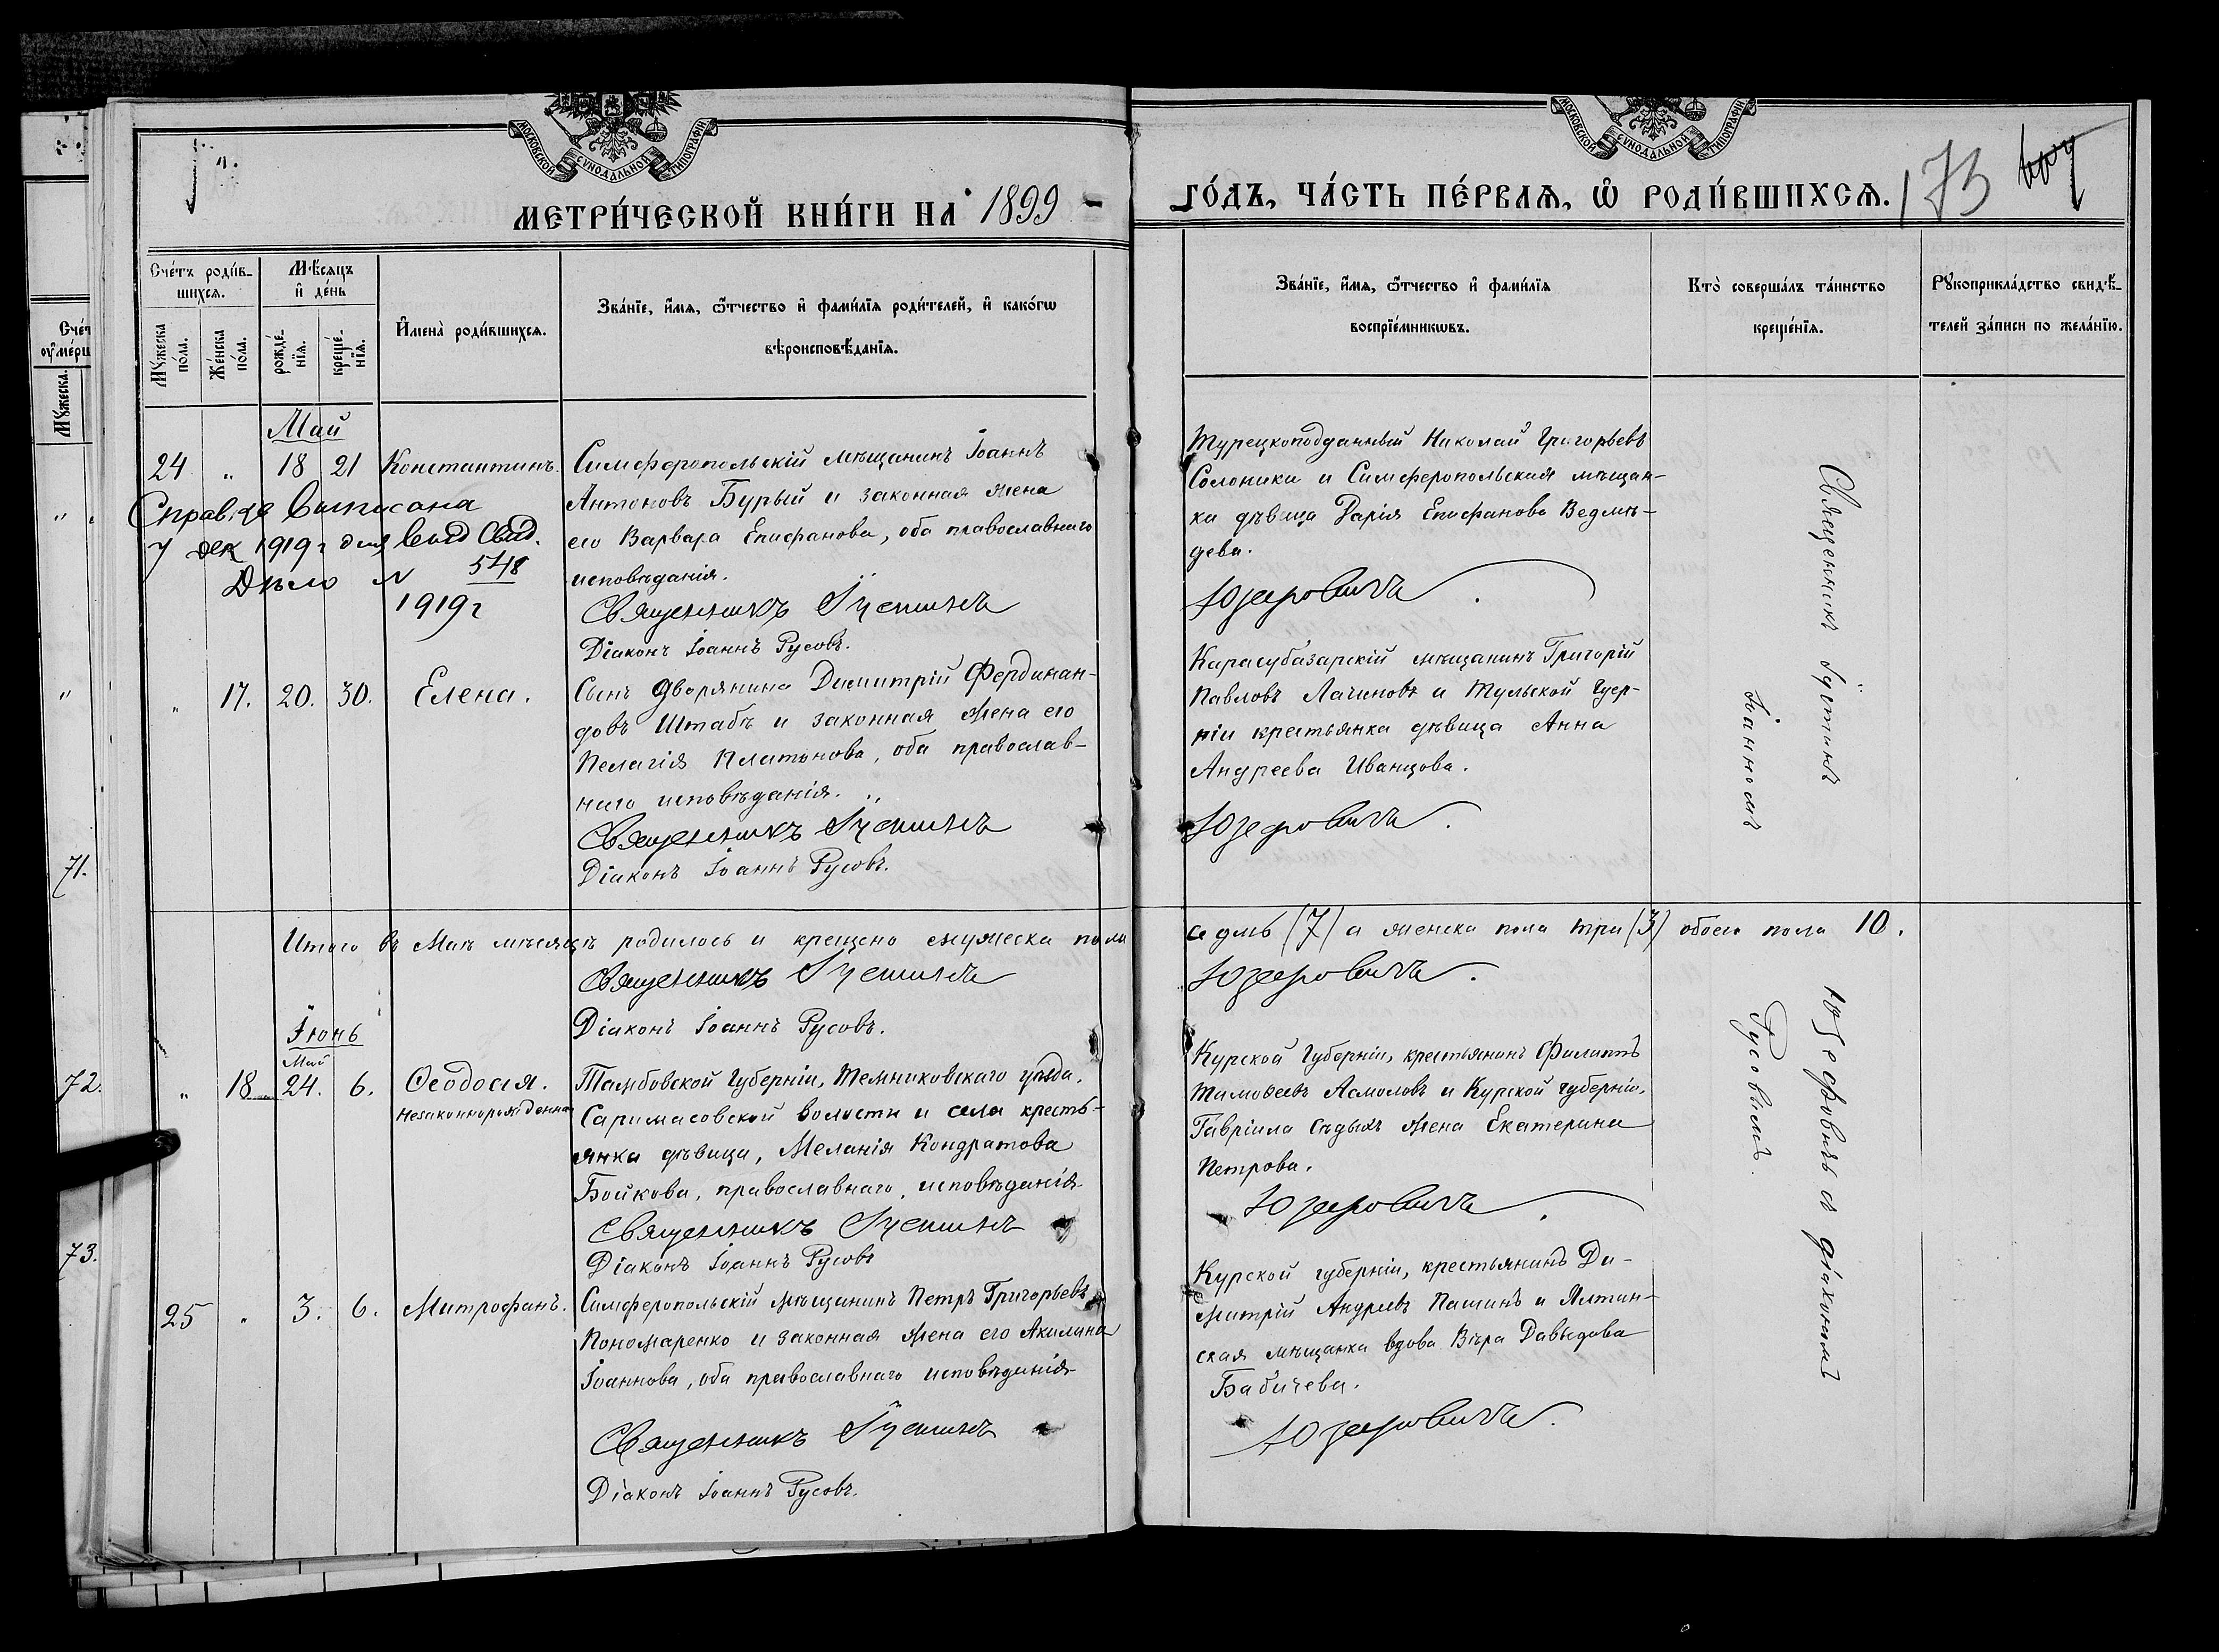 МОСКОВСКОЙ СѴНОДАЛЬНОЙ ТИПОГРАФІИ
МОСКОВСКОЙ СѴНОДАЛЬНОЙ ТИПОГРАФІИ
МЕТРИ́ЧЕСКОЙ КНИ́ГИ НА 1899
ГО́ДЪ, ЧА́СТЬ ПЕ́РВАѦ, Ѽ РОДИ́ВШИХСѦ.
173
Сче́тъ роди́в-
шихсѧ.
Мꙋ́жеска по́ла.
Же́нска по́ла.
Мѣ́сѧцъ
и҆ де́нь
рожде́-
нїѧ.
креще́-
нїѧ.
И҆мена̀ роди́вшихсѧ.
Зва́нїе, и҆́мѧ, ѻ҆́тчество и҆ фами́лїѧ роди́телей, и҆ како́гѡ
вѣроисповѣ́данїѧ.
Зва́нїе, и҆́мѧ, ѻ҆́тчество и҆ фами́лїѧ
воспрїе́мникѡвъ.
Кто̀ соверша́лъ та́инство
креще́нїѧ.
Рꙋкоприкла́дство свидѣ́-
телей за́писи по жела́нїю.
Май
24 " 18 21 Константинъ.
Симферопольскій мѣщанинъ Іоаннъ
Антоновъ Бурый и законная жена
его Варвара Епифанова, оба православнаго
исповѣданія.
Священникъ Іустинъ
Діаконъ Іоаннъ Русовъ.
Турецкоподданный Николай Григорьевъ
Солоники и Симферопольская мѣщан-
ка дѣвица Дарія Епифанова Ведмѣ-
дева.
Юзефовичъ
выписана
7 дек 1919 г для выд Свид.
Дѣло N 548
1919 г
" 17. 20. 30. Елена.
Сынъ дворянина Димитрій Фердинан-
довъ Штабъ и законная жена его
Пелагія Платонова, оба православ-
наго исповѣданія.
Священникъ Іустинъ
Діаконъ Іоаннъ Русовъ.
Карасубазарскій мѣщанинъ Григорій
Павловъ Лачиновъ и Тульской Губер-
ніи крестьянка дѣвица Анна
Андреева Иванцова.
Юзефовичъ.
Итого въ Маѣ мѣсяцѣ родилось и крещено мужеска пола
седмь (7) а женска пола три (3) обоего пола 10.
Священникъ Іустинъ
Юзефовичъ.
Діаконъ Іоаннъ Русовъ.
Іюнь
Май
" 18 24. 6. Ѳеодосія.
незаконнорожденна
Тамбовской Губерніи, Темниковскаго уѣзда,
волости и села кресть-
янка дѣвица, Меланія Кондратова
Бойкова, православнаго исповѣданія
Священникъ Іустинъ
Діаконъ Іоаннъ Русовъ
Курской Губерніи, крестьянинъ Филиппъ
Тимоѳеевъ Асмоловъ и Курской губерніи,
Гавріила Сѣдыхъ жена Екатерина
Петрова.
Юзефовичъ
25 " 3. 6. Митрофанъ.
Симферопольскій мѣщанинъ Петръ Григорьевъ
Пономаренко и законная жена его Акилина
Іоаннова, оба православнаго исповѣданія
Священникъ Іустинъ
Діаконъ Іоаннъ Русовъ.
Курской губерніи, крестьянинъ Ди-
митрій Андреевъ Пашинъ и Ялтин-
ская мѣщанка вдова Вѣра Давыдова
Бабичева.
Юзефовичъ.
Священникъ Іустинъ
Юзефовичъ съ діакономъ
Іоанномъ
Русовымъ.
Мꙋ́жеска.
71.
72.
73.